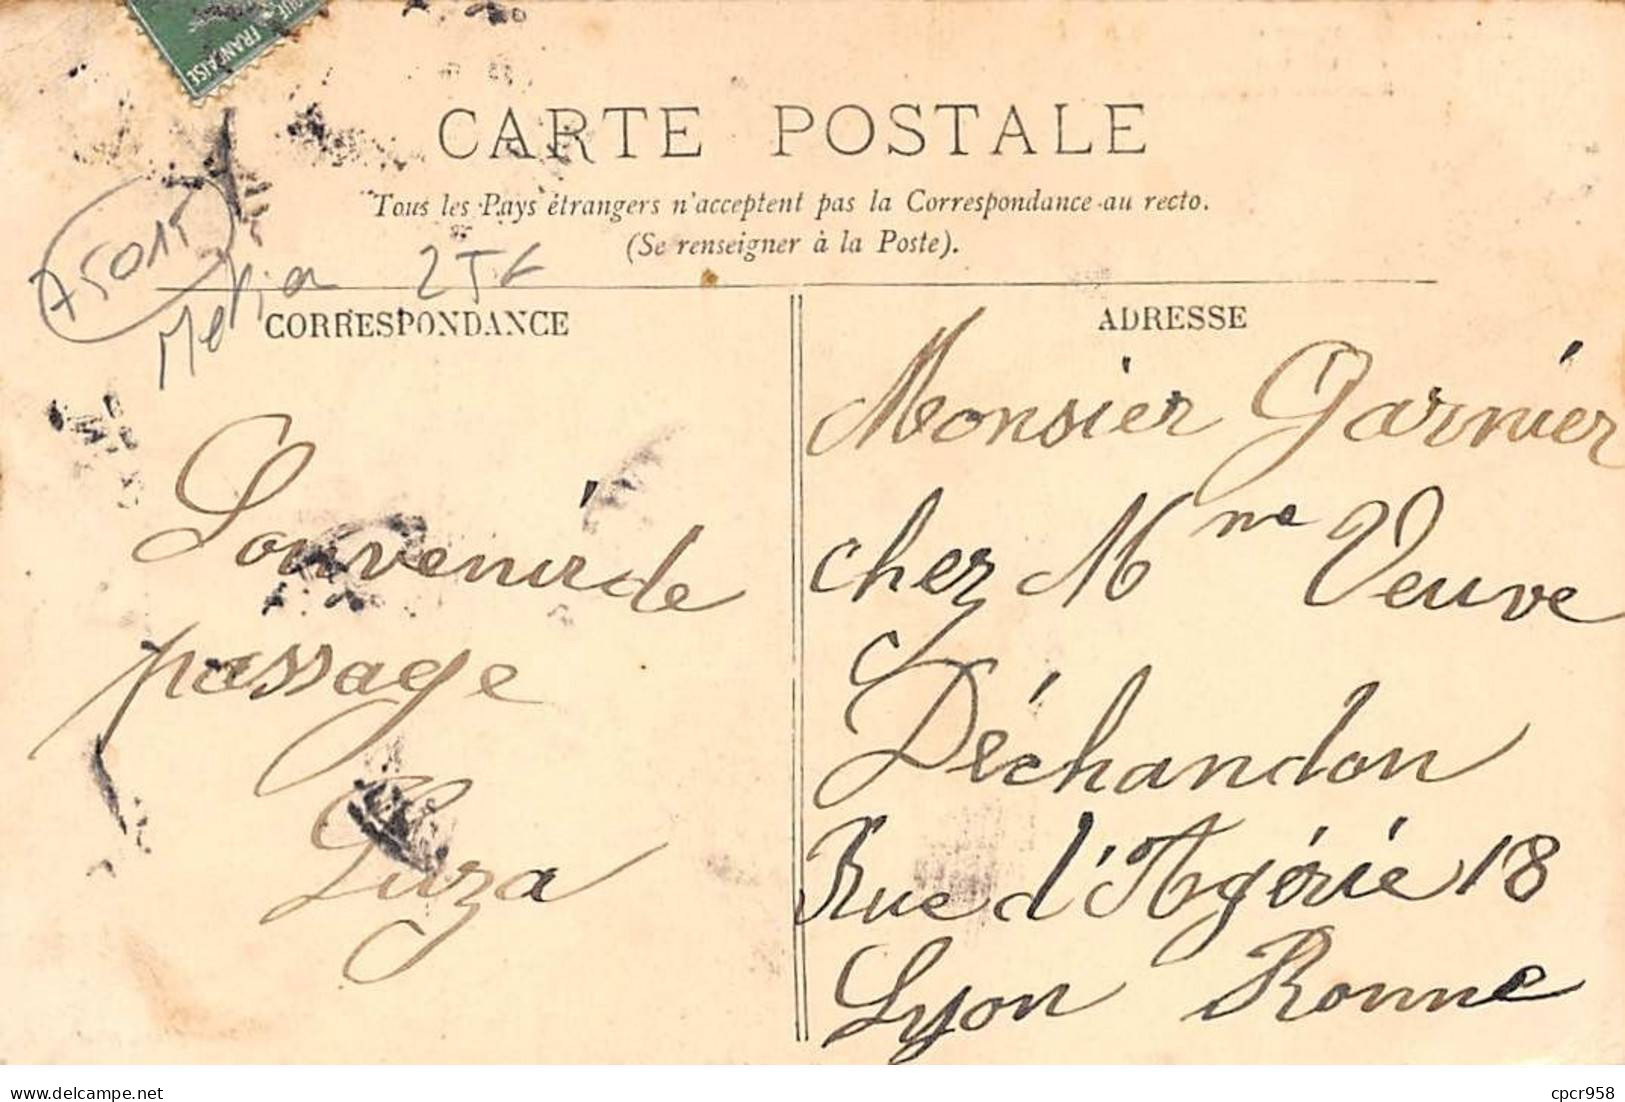 QUE FRANÇAISE
CARTE POSTALE
Tous les Pays étrangers n'acceptent pas la Correspondance au recto.
(Se renseigner à la Poste).
75015
25€
CORRESPONDANCE
ADRESSE
Souvenir de
passage
Luza
Monsier Garnier
chez Mme Veuve
Déchandon
Rue d'Agérie 18
Lyon Ronne
www.delcampe.net
cpcr958